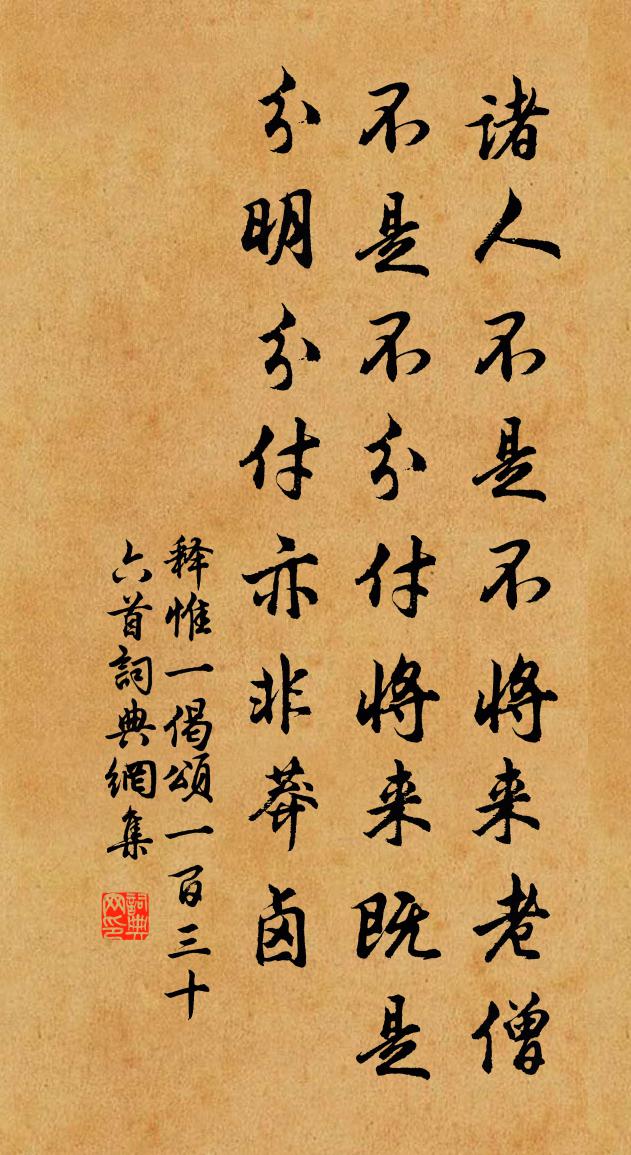 诸人不是不将来老僧
不是不分付将来既是
分明分付亦非莽卤
释惟一偈颂一百三十
六首詞典網集
詞典网印